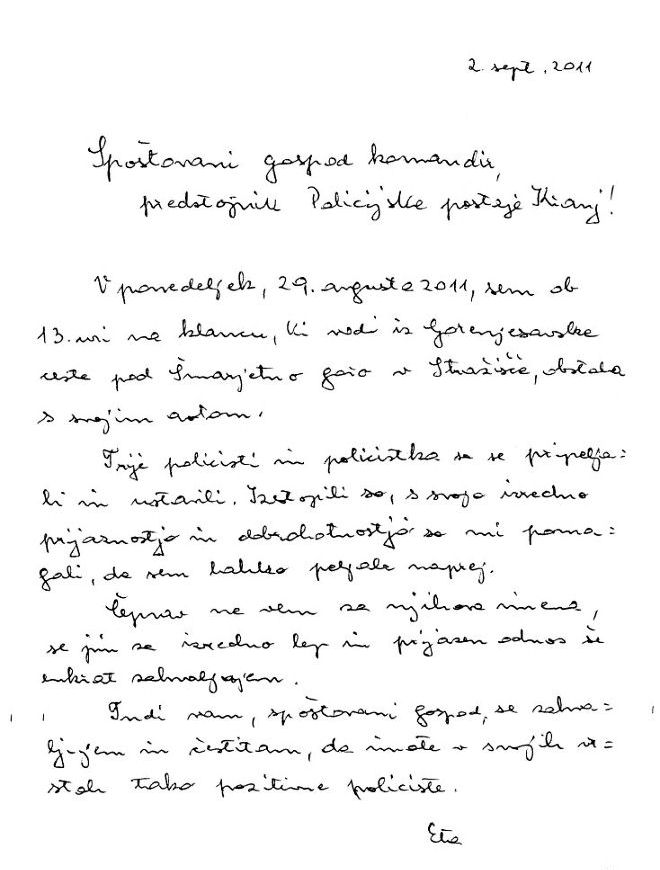 2. sept. 2011
Spoštovani gospod komandir,
predstojnik Policijske postaje Kranj!
V ponedeljek, 29. avgusta 2011, sem ob
13. uri na klancu, ki vodi iz Gorenjesavske
ceste pod Šmarjetno goro v Stražišče, obstala
s svojim avtom.
Trije policisti in policistka so se pripelja=
li in ustavili. Izstopili so, s svojo izredno
prijaznostjo in dobrohotnostjo so mi poma=
gali, da sem lahko peljala naprej.
Čeprav ne vem za njihova imena,
se jim za izredno lep in prijazen odnos še
enkrat zahvaljujem.
Tudi vam, spoštovani gospod, se zahva=
ljujem in čestitam, da imate v svojih vr=
stah tako pozitivne policiste.
Eta